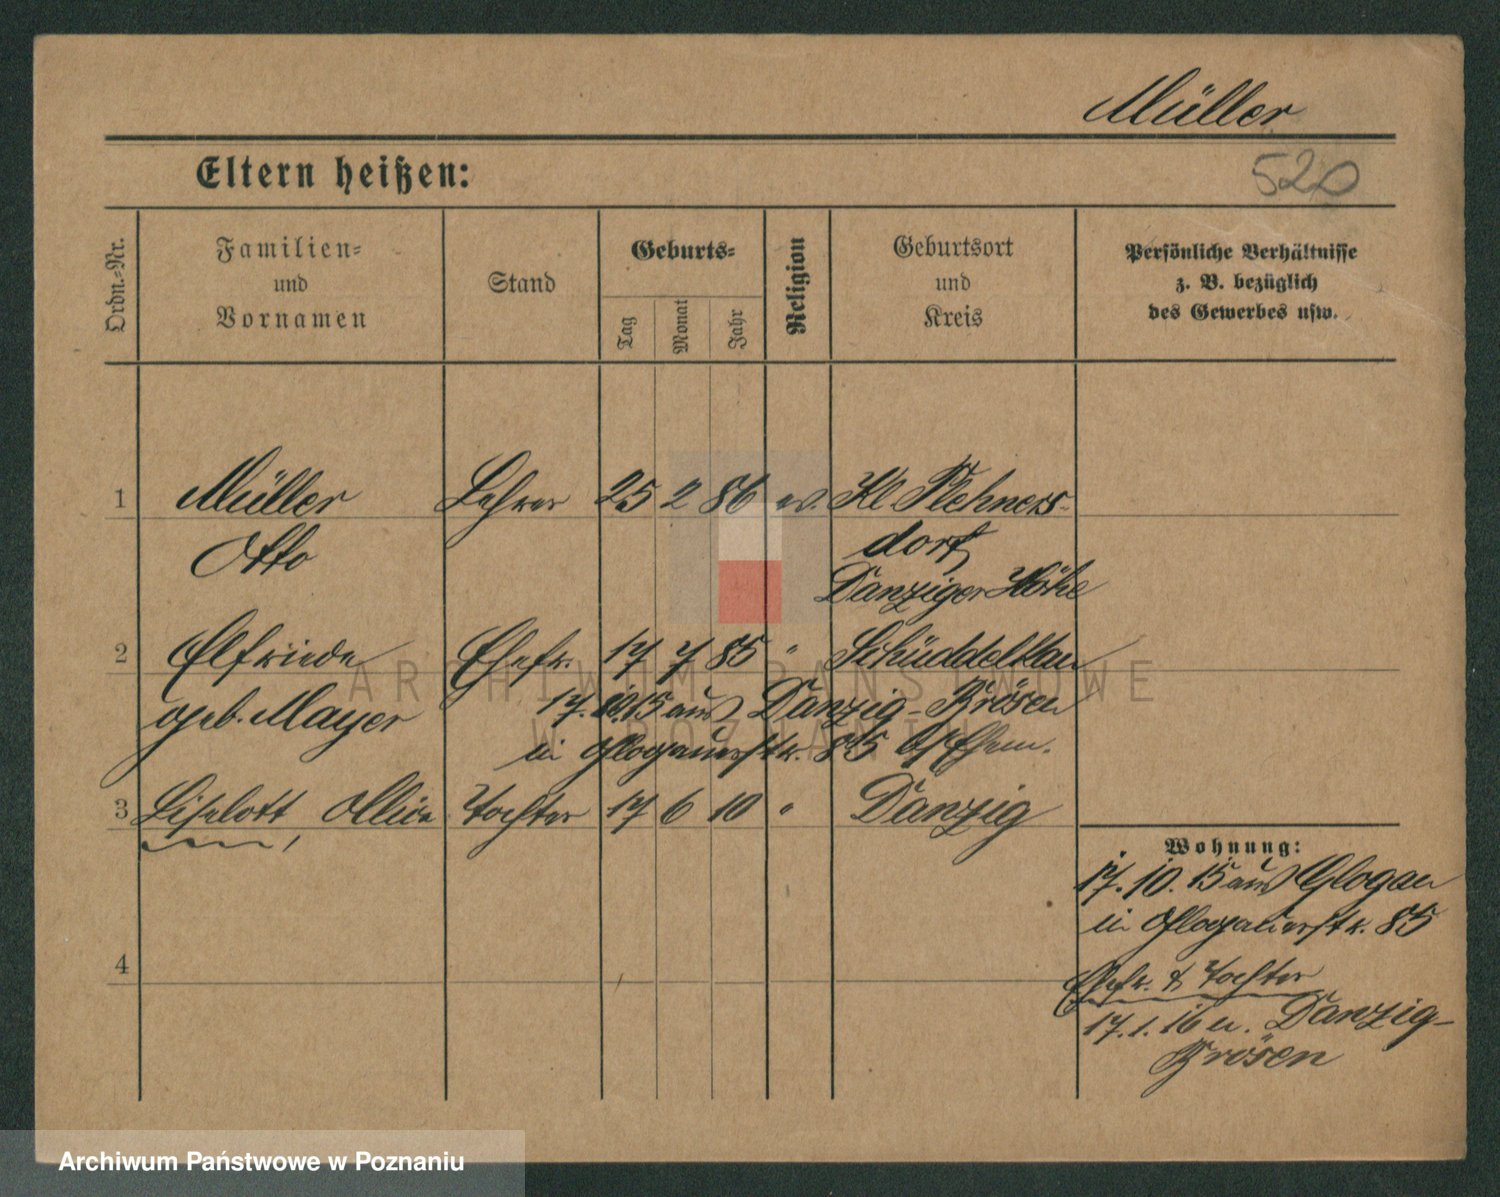 Müller
Eltern heißen:
520
Ordn.-Nr.
Familien-
und
Vornamen
Stand
Geburts-
Tag
Monat
Jahr
Religion
Geburtsort
und
Kreis
Persönliche Verhältnisse
z. B. bezüglich
des Gewerbes usw.
1 Müller Lehrer 25 2 86 ev. Kl Plehners-
Otto dorf
Danziger Höhe
2 Elfriede Ehefr. 17 7 85 " Schüddelkau
geb. Mayer 17.10.15 aus Danzig-Brösen
in Glogauerstr. 85 b/Ehem.
3 Liselott Allice Tochter 17 6 10 " Danzig
4
Wohnung:
17.10.15 aus Glogau
in Glogauerstr. 85
Ehefr. & Tochter
17.1.16 n. Danzig-
Brösen
ARCHIWUM PAŃSTWOWE
W POZNANIU
Archiwum Państwowe w Poznaniu